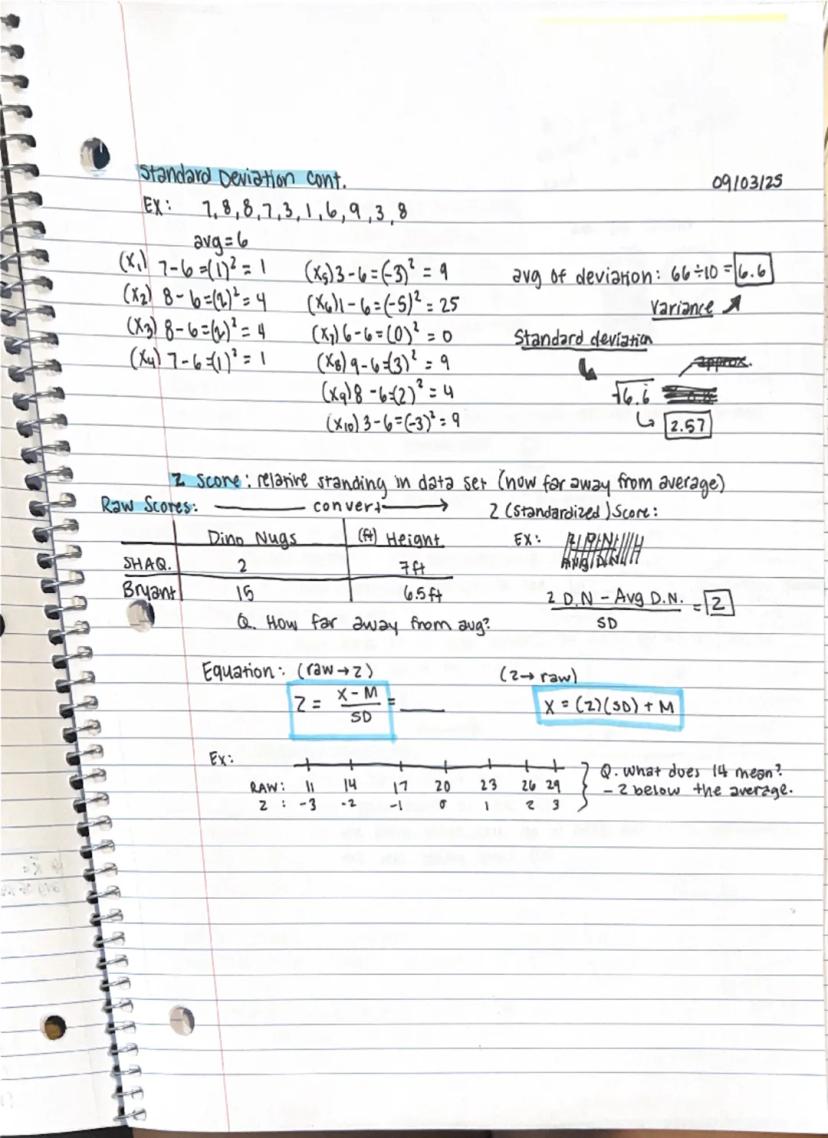 Standard Deviation cont.
09/03/25
EX: 7,8,8,7,3,1,6,9,3,8
avg=6
(X₁) 7-6=(1)² = 1
(X₂) 8-6=(2)² = 4
(X₃) 8-6=(2)² = 4
(X₄) 7-6=(1)² = 1
(X₅) 3-6=(-3)² = 9
(X₆) 1-6=(-5)² = 25
(X₇) 6-6=(0)² = 0
(X₈) 9-6=(3)² = 9
(X₉) 8-6=(2)² = 4
(X₁₀) 3-6=(-3)² = 9
avg of deviation: 66÷10 = 6.6
Variance ↗
Standard deviation
approx.
√6.6
↳ 2.57
Z Score: relative standing in data set (how far away from average)
Raw Scores: convert → Z (Standardized) Score:
Dino Nugs (ft) Height
SHAQ. 2 7ft
Bryant 15 6.5ft
Q. How far away from avg?
EX:
2 D.N - Avg D.N. / SD = Z
Equation: (raw→z)
Z = X-M / SD = ____
(z→raw)
X = (Z)(SD) + M
Ex:
RAW: 11 14 17 20 23 26 29
Z : -3 -2 -1 0 1 2 3
Q. What does 14 mean?
- 2 below the average.